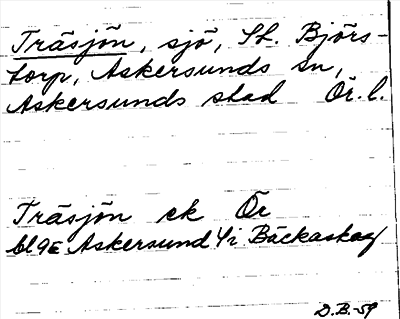 Träsjön, sjö, St. Björs-
torp, Askersunds sn,
Askersunds stad Ör. l.
Träsjön ek Ör
bl. 9E Askersund 4/i Bäckaskog
D.B.-59